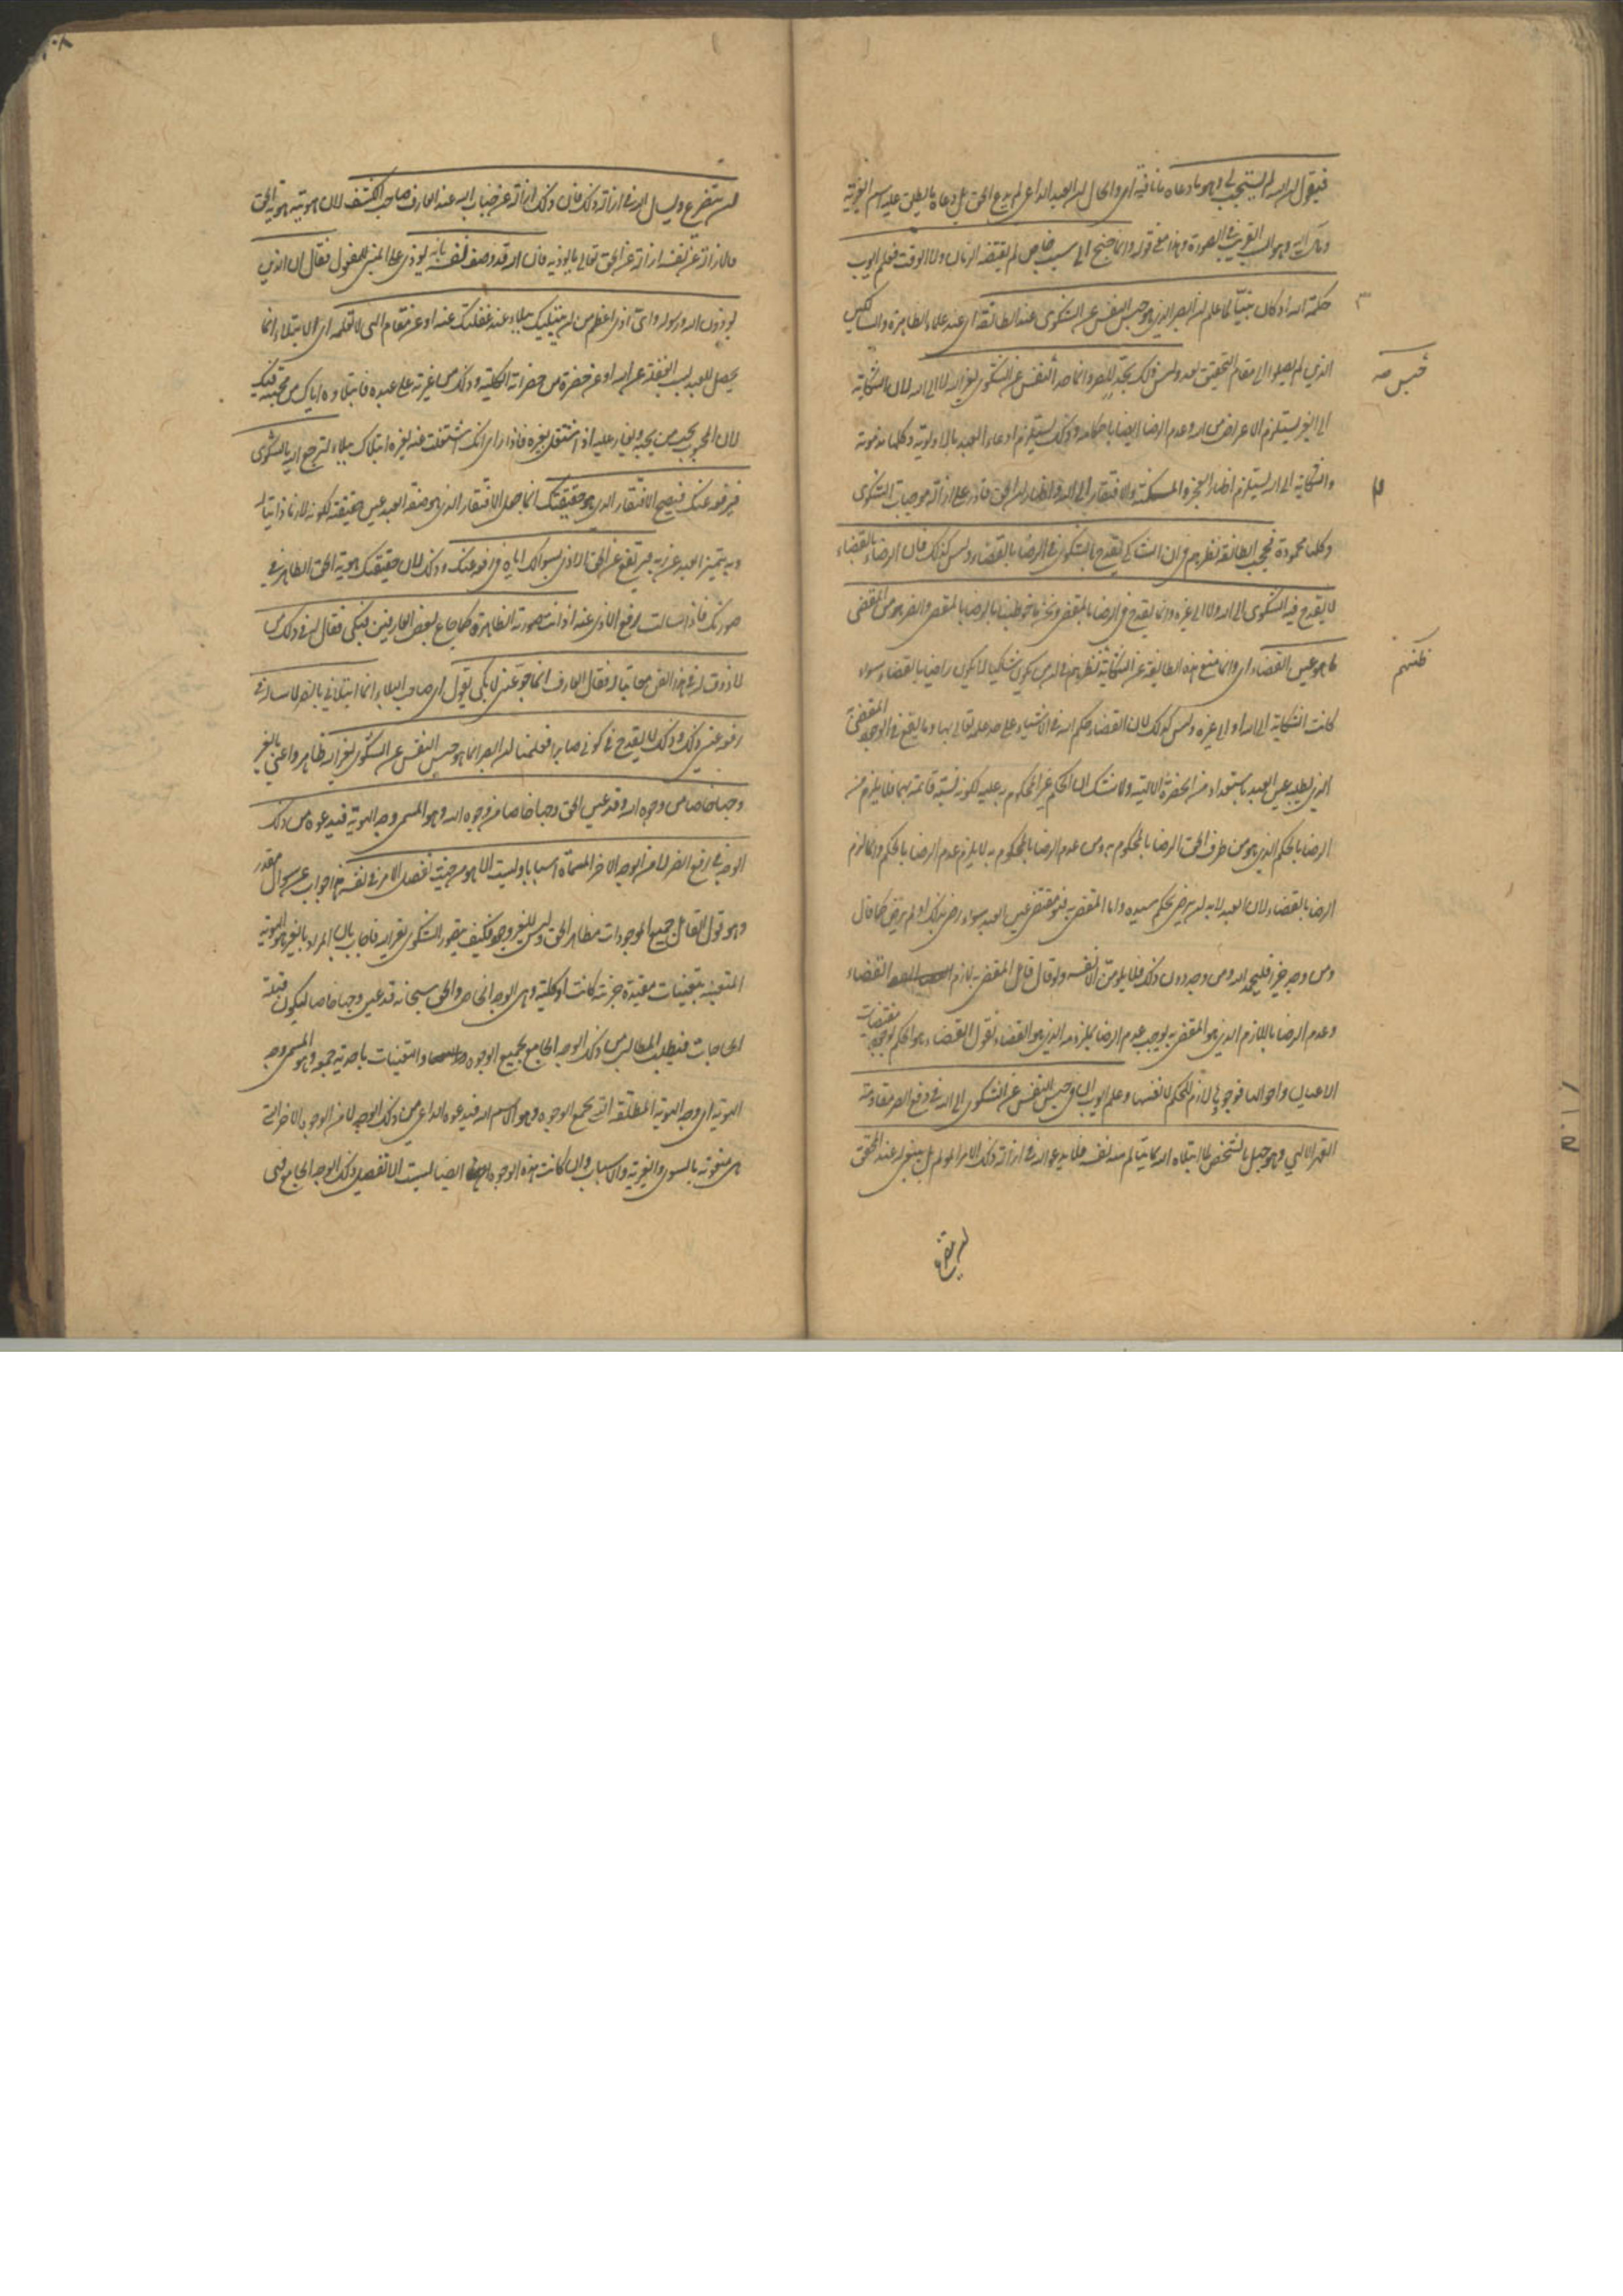 فيقول ان الله لم يستجب لي وهو ما دعاه ما نافية اى والحال ان العبد الداعى لم يدع الحق بل دعاه ما يطلق عليه اسم الغيرية
وذلك السبب القريب في الصورة وهذا معنى قوله وانما جنح الى سبب خاص لم يقتضه الزمان ولا الوقت فعلم ايوب
حكمة الله اذ كان نبيا لما علم ان الصبر الذى هو حبس النفس عن الشكوى عند الطائفة اى عند علماء الظاهرة والسالكين
الذين لم يصلوا الى مقام التحقيق بعد وليس ذلك بحد للصبر وانما حده حبس النفس عن الشكوى لغير الله لا الى الله لان الشكاية
الى الغير يستلزم الاعراض من الله وعدم الرضا ايضا باحكامه وذلك يستلزم ادعاء العبد بالاولوية وكلها مذمومة
والشكاية الى الله يستلزم اظهار العجز والمسكنة والافتقار الى الله واظهار ان الحق قادر على ازالة موجبات الشكوى
وكلها محمودة فحجب الطائفة نظرهم في ان الشاكى يقدح بالشكوى في الرضا بالقضاء وليس كذلك فان الرضا بالقضاء
لا يقدح فيه الشكوى الى الله ولا الى غيره وانما يقدح في الرضا بالمقضى ونحن ما خوطبنا بالرضا بالمقضى والضر هو من المقضى
ما هو عين القضاء اى وانما منع هذه الطائفة عن الشكاية نظرهم في ان من يكون شاكيا لا يكون راضيا بالقضاء سواء
كانت الشكاية الى الله او الى غيره وليس كذلك لان القضاء حكم الله في الاشياء على حد علمه تعالى بها وما يقع في الوجود المقضى
الذى يطلبه عين العبد باستعداده من الحضرة الالهية ولا شك ان الحكم غير المحكوم به وعليه لكونه نسبة قائمة بهما فلا يلزم من
الرضا بالحكم الذى هو من طرف الحق الرضا بالمحكوم به ومن عدم الرضا بالمحكوم به لا يلزم عدم الرضا بالحكم وانما لزم
الرضا بالقضاء لان العبد لا بد ان يرضى بحكم سيده واما المقضى به فهو مقتضى عين العبد سواء رضى بذلك او لم يرض كما قال
ومن وجد خيرا فليحمد الله ومن وجد دون ذلك فلا يلومن الا نفسه ولو قال قائل المقضى به لازم القضاء
وعدم الرضا باللازم الذى هو المقضى به يوجب عدم الرضا بملزومه الذى هو القضاء نقول القضاء هو الحكم بوجود مقتضيات
الاعيان واحوالها فوجودها لازم للحكم لا نفسها وعلم ايوب ان في حبس النفس عن الشكوى الى الله في دفع الضر مقاومة
القهر الالهي وهو جهل بالشخص لما ابتلاه الله بما يتالم منه نفسه فلا يدعو الله في ازالة ذلك الامر المولم بل ينبغي له عند المحقق
ان يتضرع
حبس صه
ظنهم
ان يتضرع ويسأل الله في ازالة ذلك فان ذلك ازالة عن جناب الله عند العارف صاحب الكشف لان هويته هوية الحق
فالازالة عن نفسه ازالة عن الحق تعالى ما يوذيه فان الله قد وصف نفسه بانه يوذى على المبنى للمفعول فقال ان الذين
يوذون الله ورسوله واى اذى اعظم من ان يبتليك ببلاء عند غفلتك عنه او عن مقام الهى لا تعلمه اى الابتلاء انما
يحصل للعبد بسبب الغفلة عن الله او عن حضرة من حضراته الكلية وذلك من غيرته على عبده فابتلاوه اياك من محبته فيك
لان المحب يحب من يحبه ويغار عليه اذا اشتغل بغيره فاذا راى انك اشتغلت عنه لغيره ابتلاك ببلاء لترجع اليه بالشكوى
فيرفعه عنك فيصح الافتقار الذى هو حقيقتك انما جعل الافتقار الذى هو صفة العبد عين حقيقته لكونه لازما ذاتيا له
وبه يتميز العبد عن ربه فيرتفع عن الحق الاذى بسوالك اياه في رفعه عنك وذلك لان حقيقتك هوية الحق الظاهرة في
صورتك فاذا سالت برفع الاذى عنه اذ انت صورته الظاهرة كما جاع بعض العارفين فبكى فقال له في ذلك من
لا ذوق له في هذا الفن معاتبا له فقال العارف انما جوعني لابكى يقول اى صاحب البلاء انما ابتلاني بالضر لاساله في
رفعه عنى ذلك وذلك لا يقدح في كونى صابرا فعلمنا ان الصبر انما هو حبس النفس عن الشكوى لغير الله ظاهر واعنى بالغير
وجها خاصا من وجوه الله وقد عين الحق وجها خاصا من وجوه الله وهو المسمى وجه الهوية فيدعوه من ذلك
الوجه في رفع الضر لا من الوجوه الاخر المسماة اسبابا وليست الا هو من حيث تفصيل الامر في نفسه هذا جواب عن سوال مقدر
وهو قول القائل جميع الموجودات مظاهر الحق وليس للغير وجود فكيف يتصور الشكوى لغير الله فاجاب بان المراد بالغير الهوية
المتعينة بتعينات مقيدة جزئية كانت او كلية وهى الوجه الخاص والحق سبحانه قد عين وجها خاصا ليكون قبلة
الحاجات فيطلب المطالب من ذلك الوجه الجامع بجميع الوجوه والتعينات باحدية جمعه وهو المسمى وجه
الهوية اى وجه الهوية المطلقة التى تجمع الوجوه وهو الاسم الله فيدعوه الداعى من ذلك الوجه لا من الوجوه الاخر التى
هى منعوتة بالسوى والغيرية والاسباب وان كانت هذه الوجوه ايضا ليست الا تفصيل ذلك الوجه الجامع فهى